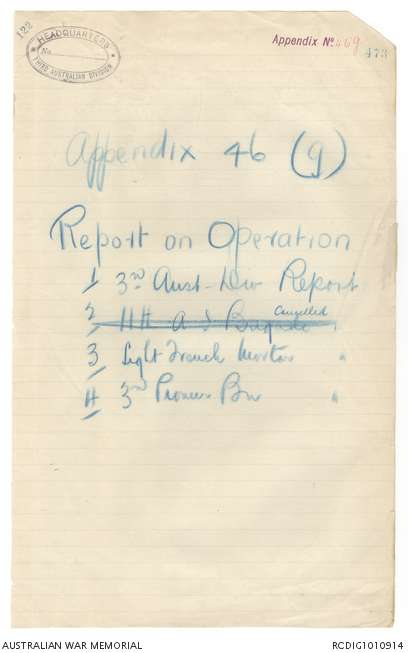 122
HEADQUARTERS
No.
THIRD AUSTRALIAN DIVISION
Appendix No. 469
473
Appendix 46 (g)
Report on Operation
1 3rd Aust-Div Report
Cancelled
2 11th A I Brigade "
3 Light Trench Mortar "
4 3rd Pioneer Bn "
AUSTRALIAN WAR MEMORIAL
RCDIG1010914